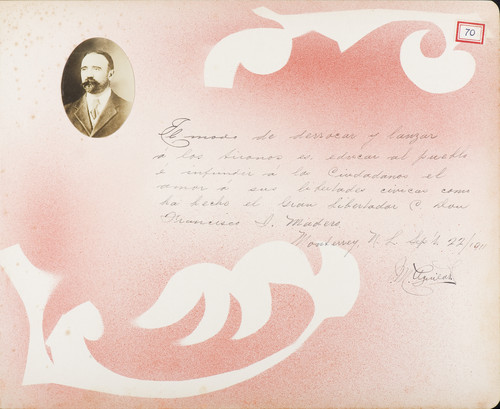 70
El modo de derrocar y lanzar
a los tiranos es, educar al pueblo
e infundir a los Ciudadanos el
amor á sus libertades civicas como
ha hecho el Gran libertador C. Don
Francisco I. Madero
Monterrey, N. L. Sept. 22/1911
Aguilar